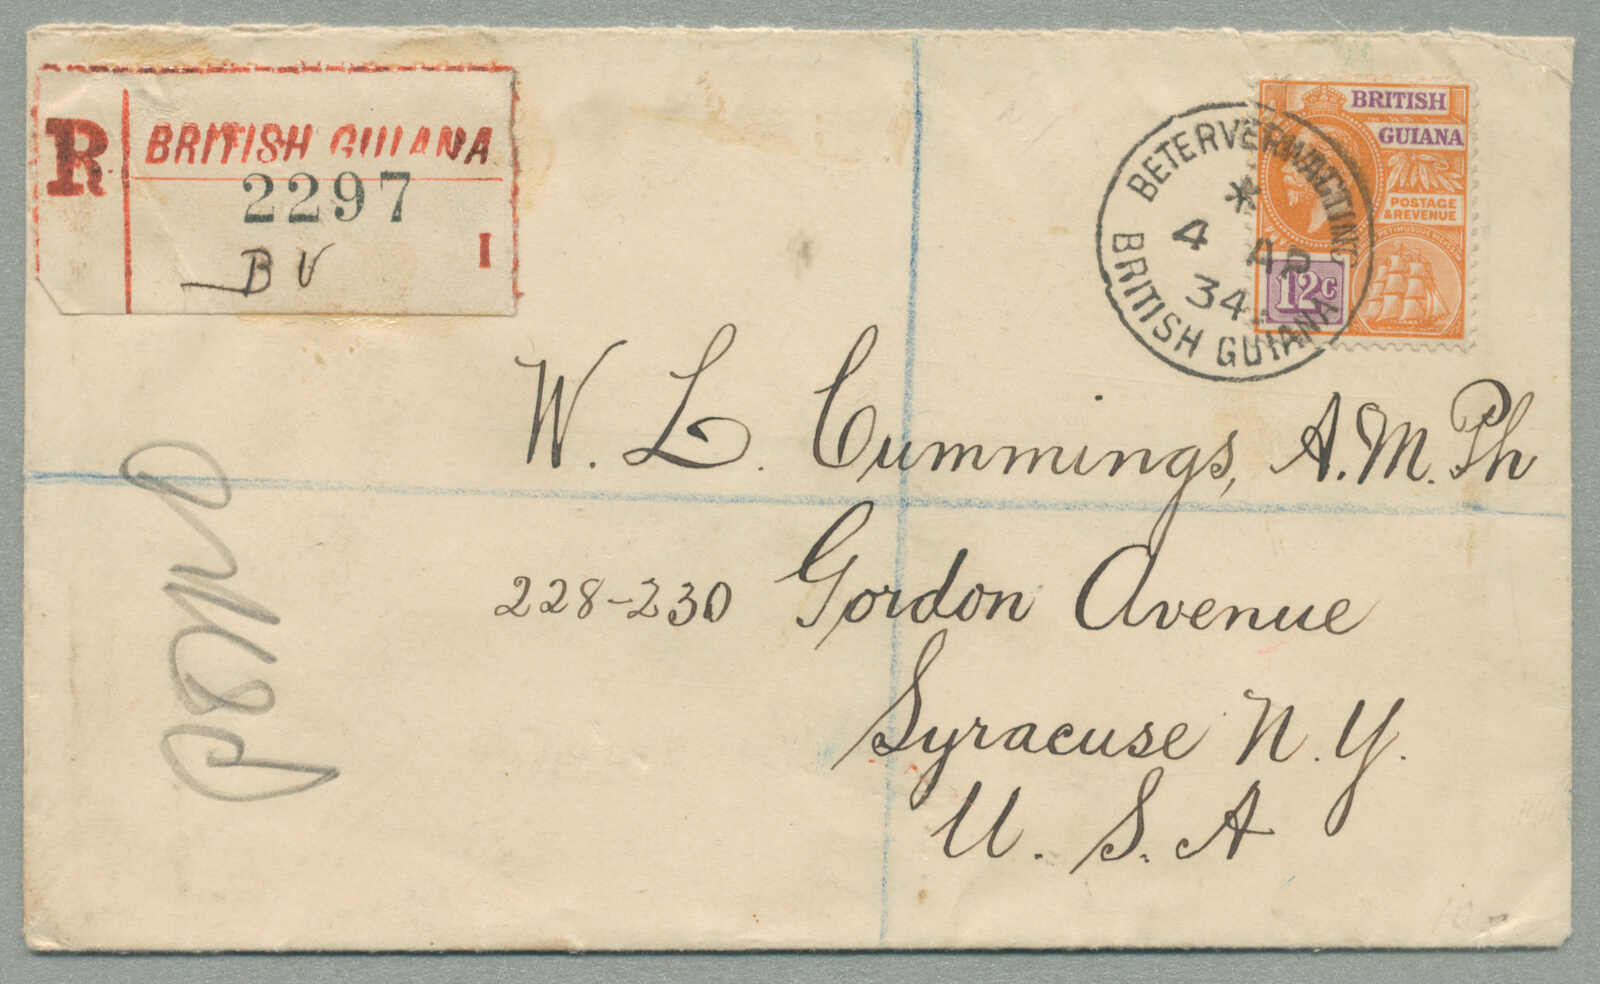 R
BRITISH GUIANA
2297
B V
I
BETERVERWACTING
*
4 AP
34
BRITISH GUIANA
BRITISH
GUIANA
POSTAGE
& REVENUE
12c
W. L. Cummings, A.M.Ph
228-230 Gordon Avenue
Syracuse N.Y.
U.S.A